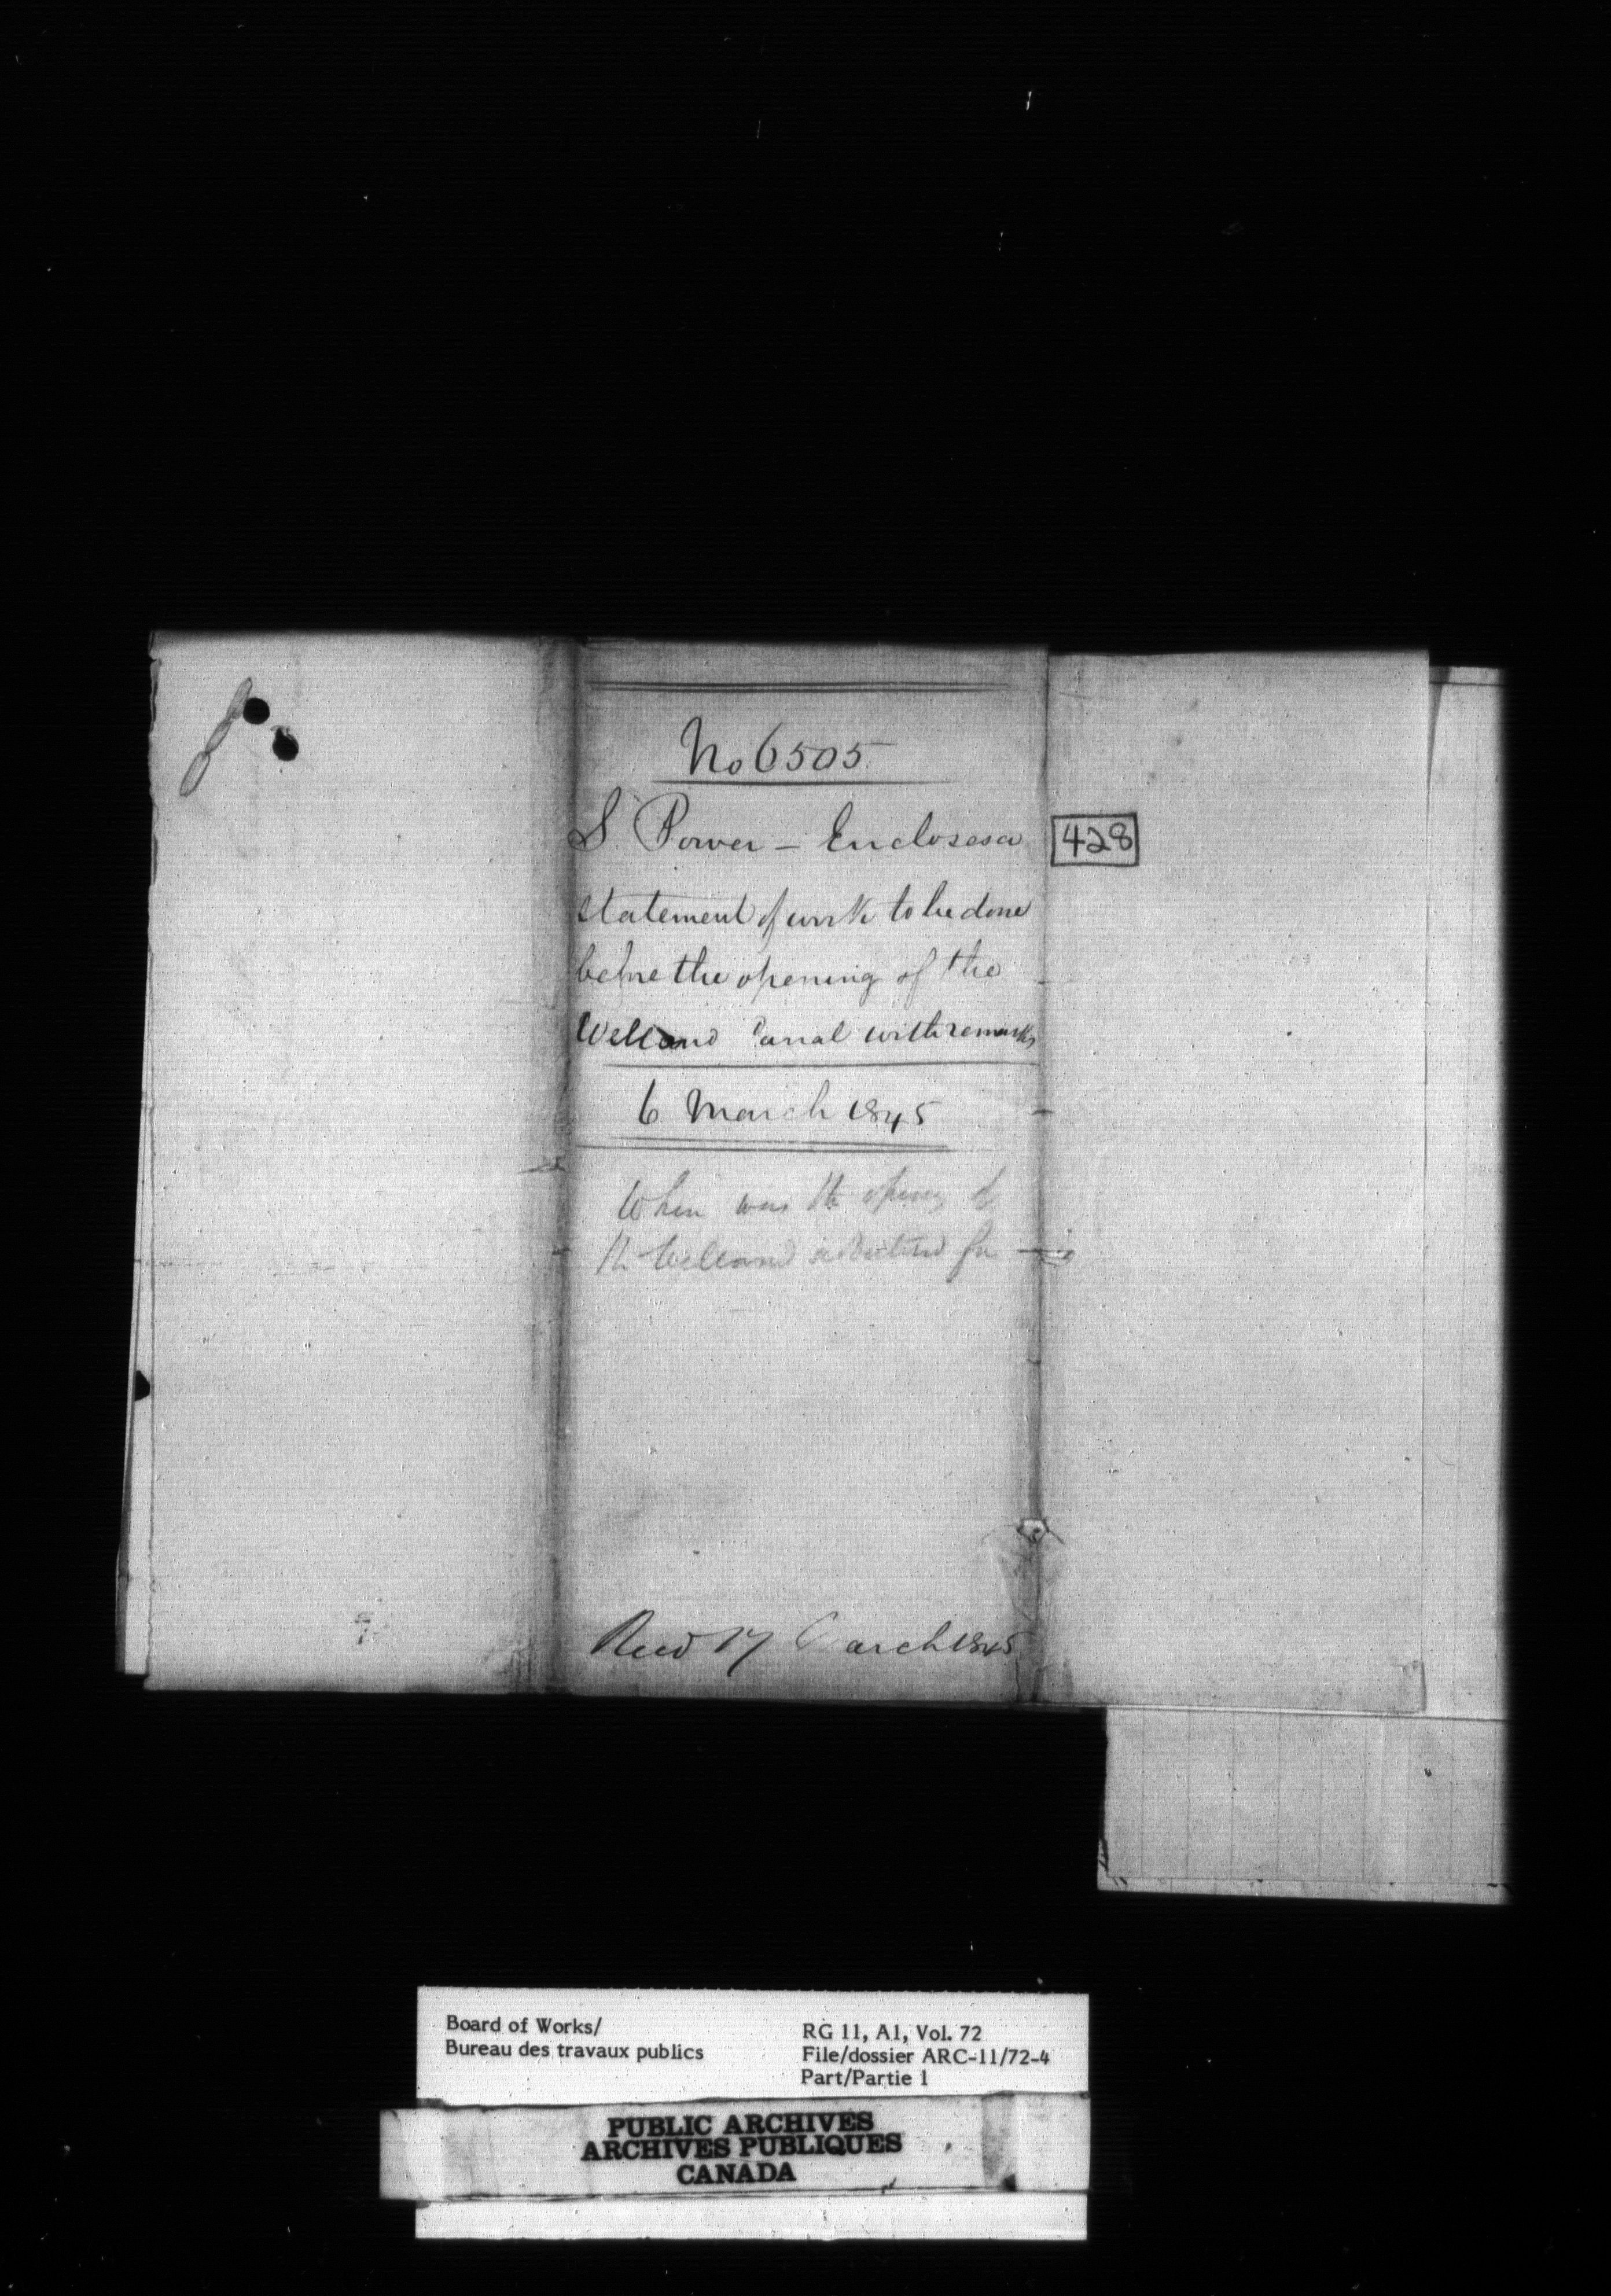 No 6505
S. Power - Encloses a
428
statement of work to be done
before the opening of the
Welland Canal with remarks
6 March 1845
When was the opening of
the Welland advertised for
Recd 17 March 1845
Board of Works/
Bureau des travaux publics
RG 11, A1, Vol. 72
File/dossier ARC-11/72-4
Part/Partie 1
PUBLIC ARCHIVES
ARCHIVES PUBLIQUES
CANADA